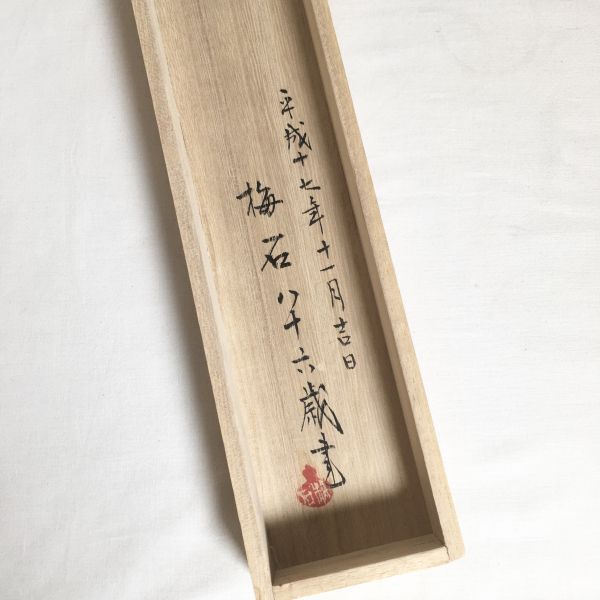 平成十七年十一月吉日
梅石八十六歳書